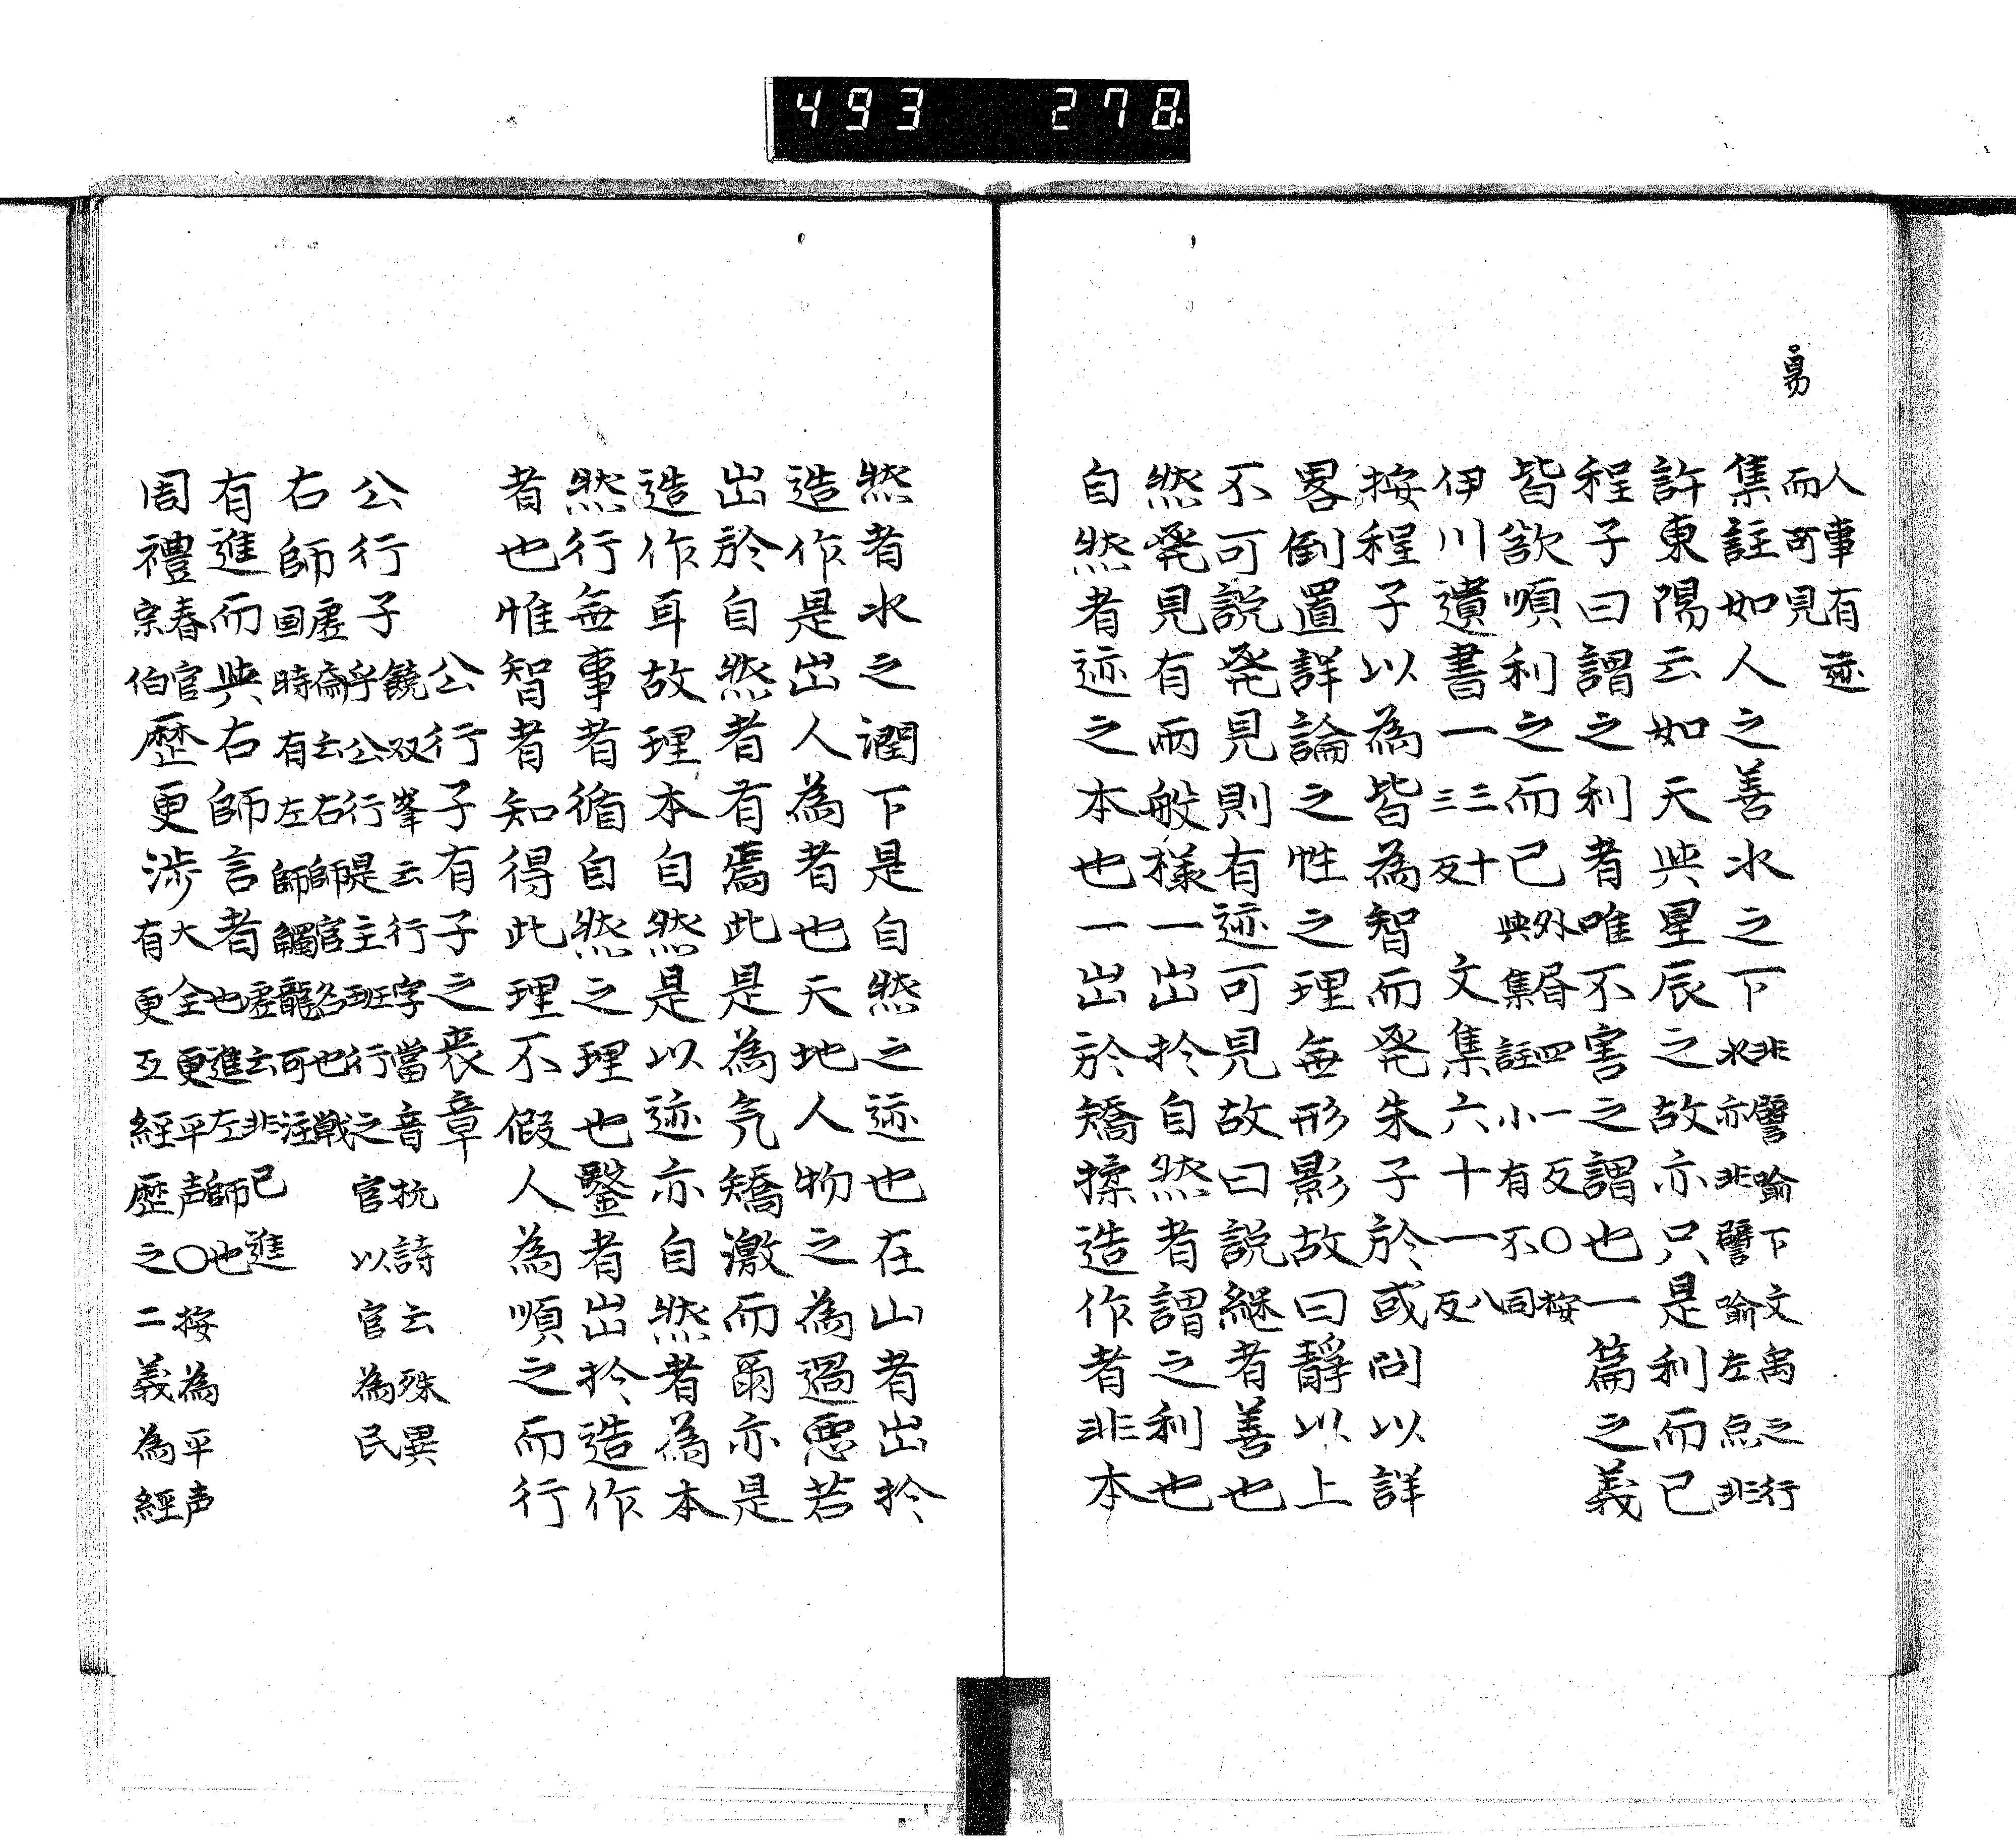 493 278
人事有迹
而可見
集註如人之善水之下 非譬喻下文禹之行
水亦非譬喻左点非
許東陽云如天與星辰之故亦只是利而已
程子曰謂之利者唯不害之謂也一篇之義
皆欲順利之而已 外昏四一反〇按
與集註小有不同
伊川遺書一 三十
三反 文集六十一 八
反
按程子以為皆為智而発朱子於或問以詳
畧倒置詳論之性之理無形影故曰靜以上
不可説発見則有迹可見故曰説継者善也
然発見有両般樣一出扵自然者謂之利也
自然者迹之本也一出於矯揉造作者非本
然者水之潤下是自然之迹也在山者出扵
造作是出人為者也天地人物之為過悪若
出於自然者有焉此是為気矯激而爾亦是
造作耳故理本自然是以迹亦自然者為本
然行無事者循自然之理也鑿者出扵造作
者也惟智者知得此理不假人為順之而行
公行子有子之喪章
公行子 饒双峯云行字當音抗詩云殊異
乎公行是主班行之官以官為民
右師 虚斎云右師官名也戦
国時有左師觸龍可注
虚云非已進
也進左師也
有進而與右師言者
周禮 春官
宗伯 歴更渉 大全更平声〇按為平声
有更互経歴之二義為経